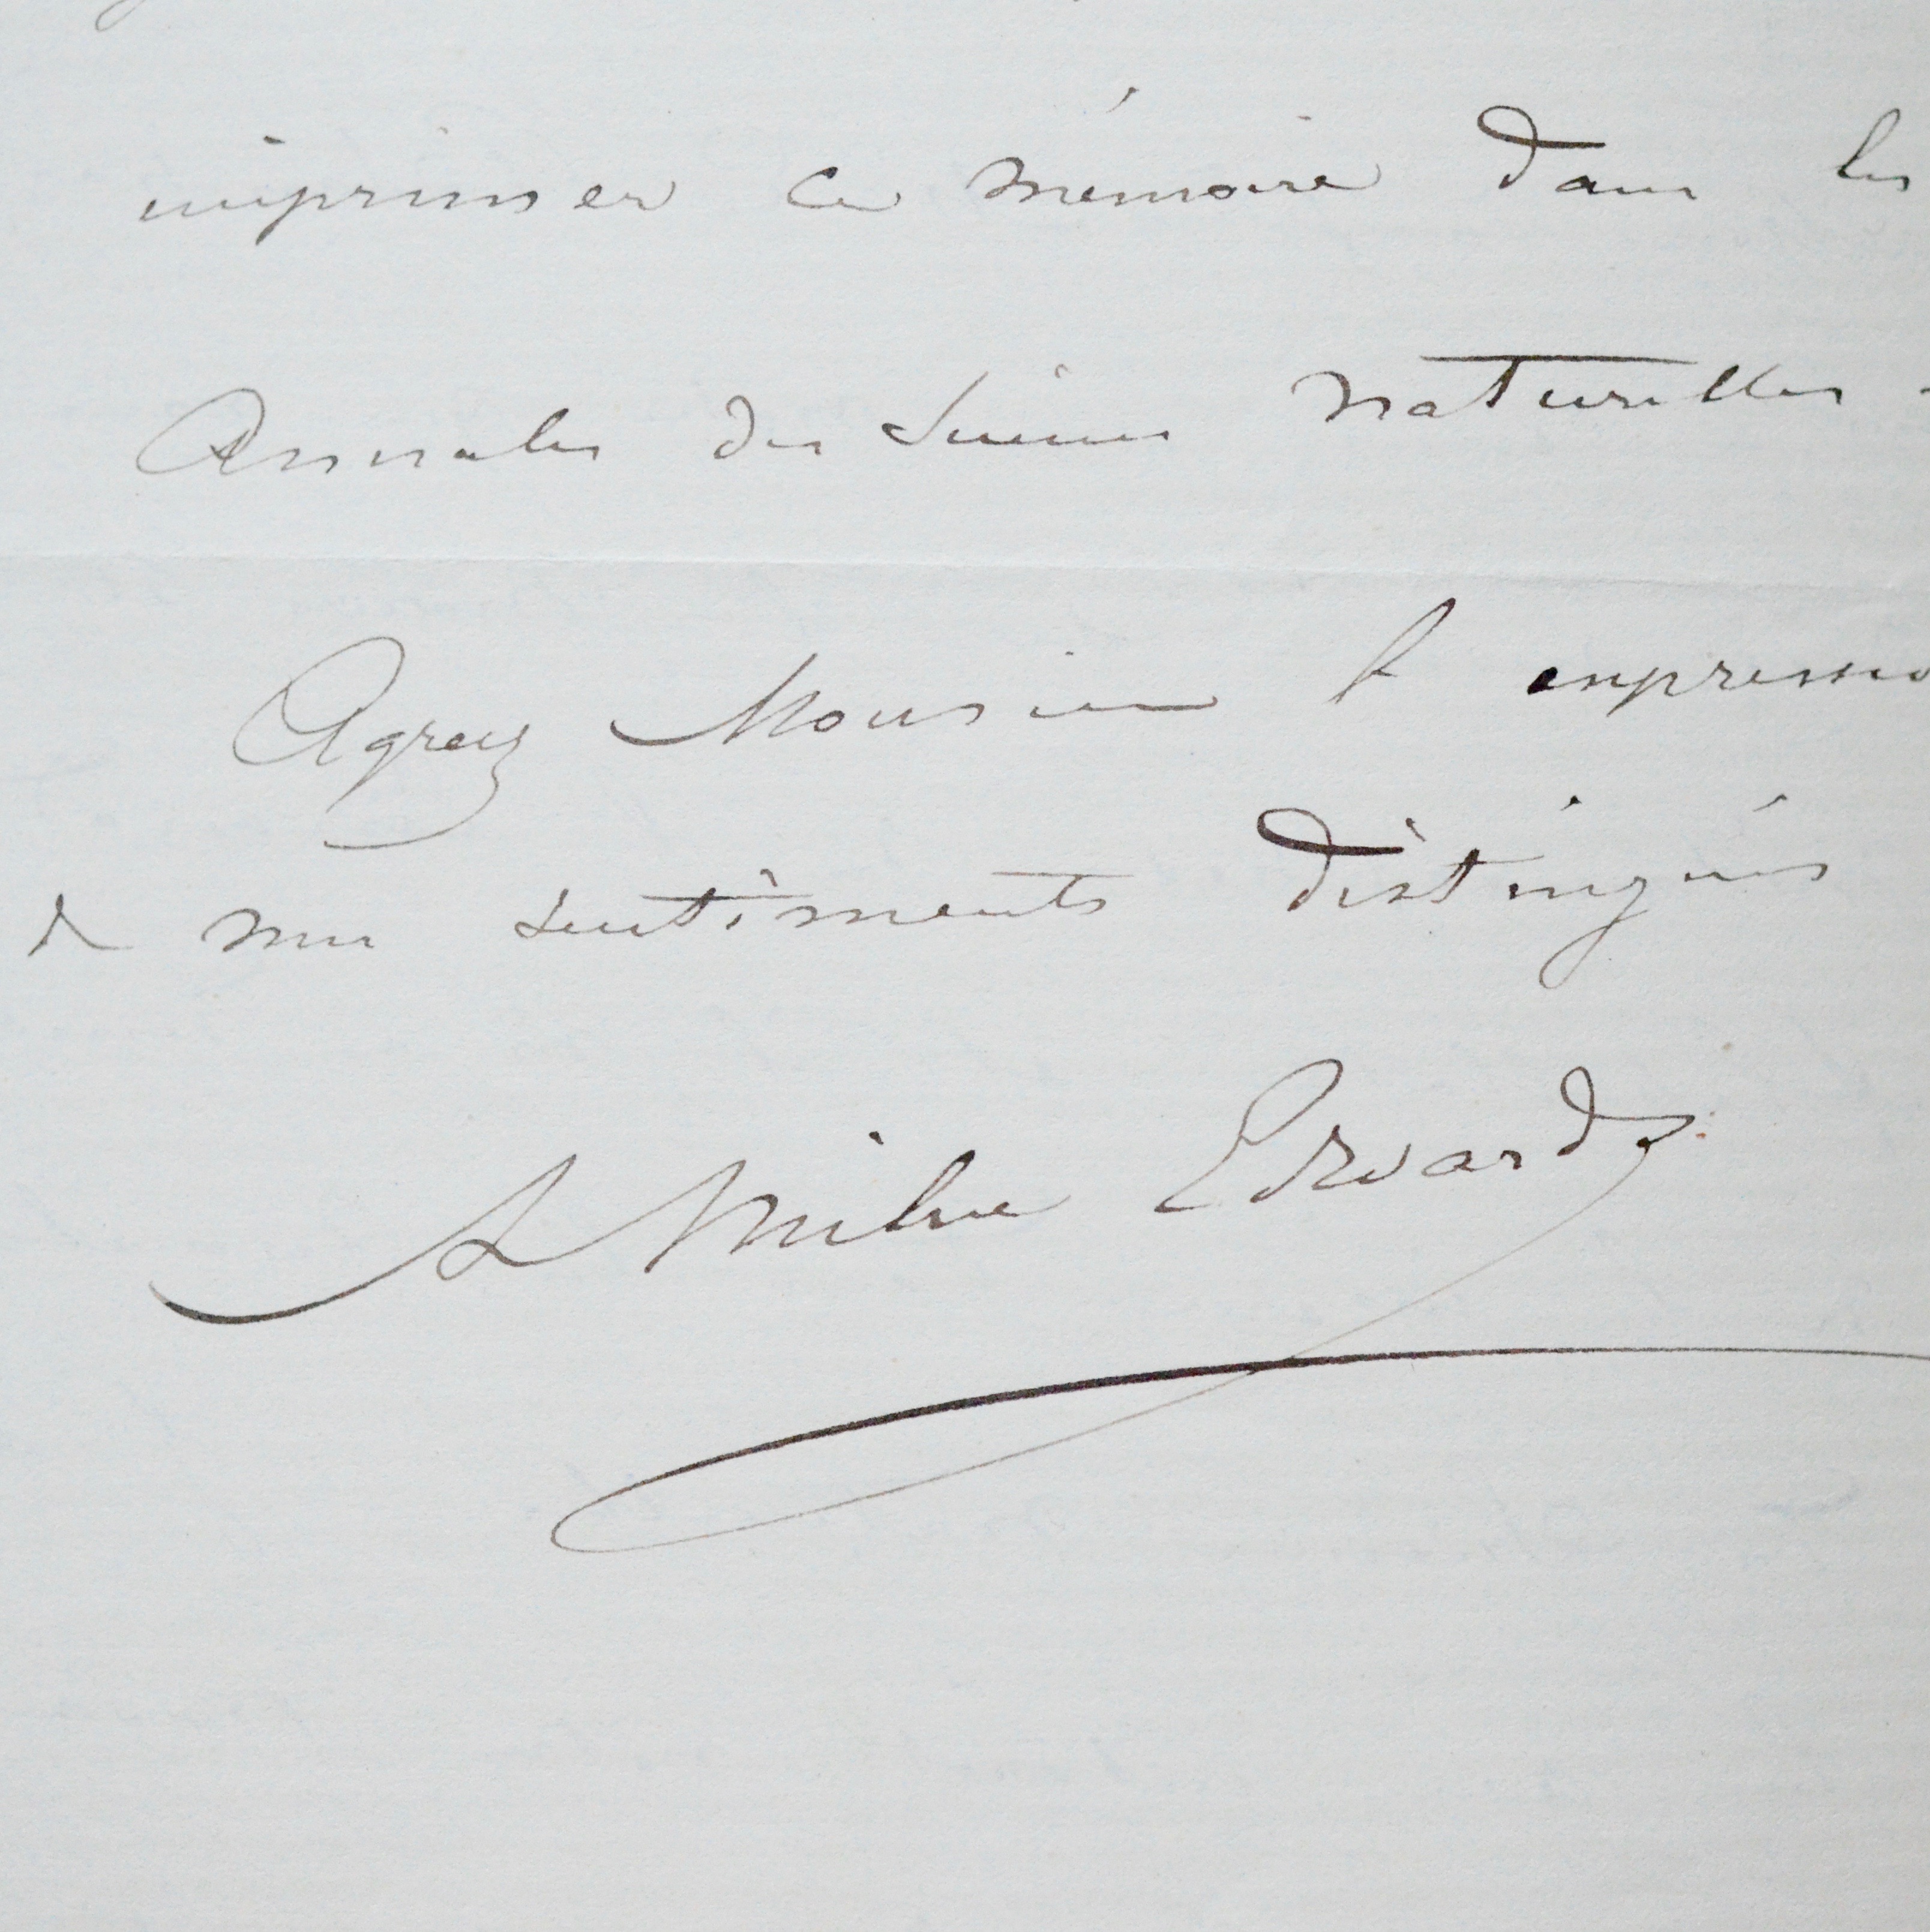 imprimer ce mémoire dans les
Annales des Sciences naturelles.
Agréez Monsieur l'expressio
de mes sentiments distingués
A Milne Edwards